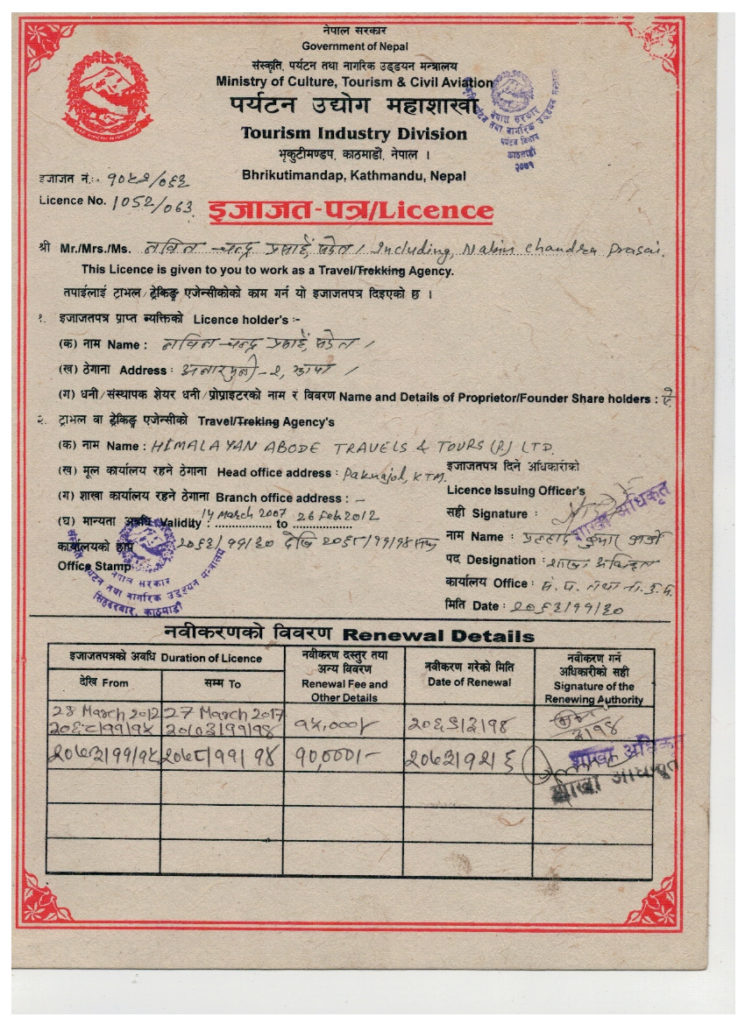 नेपाल सरकार
Government of Nepal
संस्कृति, पर्यटन तथा नागरिक उड्डयन मन्त्रालय
Ministry of Culture, Tourism & Civil Aviation
पर्यटन उद्योग महाशाखा
Tourism Industry Division
भृकुटीमण्डप, काठमाडौं, नेपाल ।
Bhrikutimandap, Kathmandu, Nepal
इजाजत नं.: १०५२/०६३
Licence No. 1052/063
इजाजत-पत्र/Licence
श्री Mr./Mrs./Ms. नविन चन्द्र प्रसाईं समेत / Including, Nabin Chandra Prasai.
This Licence is given to you to work as a Travel/Trekking Agency.
तपाईलाई ट्राभल/ट्रेकिङ्ग एजेन्सीकोको काम गर्न यो इजाजतपत्र दिइएको छ ।
१. इजाजतपत्र प्राप्त ब्यक्तिको Licence holder's :-
(क) नाम Name : नविन चन्द्र प्रसाईं समेत /
(ख) ठेगाना Address : अनारमुनी-२, झापा /
(ग) धनी/संस्थापक शेयर धनी/प्रोप्राइटरको नाम र विवरण Name and Details of Proprietor/Founder Share holders : ऐ
२. ट्राभल वा ट्रेकिङ्ग एजेन्सीको Travel/Treking Agency's
(क) नाम Name : HIMALAYAN ABODE TRAVELS & TOURS (P.) LTD.
(ख) मूल कार्यालय रहने ठेगाना Head office address : Paknajol, KTM.
(ग) शाखा कार्यालय रहने ठेगाना Branch office address : -
(घ) मान्यता अवधि Validity : 14 March 2007 to 26 Feb 2012
२०६३/११/३० देखि २०६८/११/१४ सम्म
कार्यालयको छाप
Office Stamp
इजाजतपत्र दिने अधिकारीको
Licence Issuing Officer's
सही Signature :
शाखा अधिकृत
नाम Name : प्रल्हाद कुमार
पद Designation : शाखा अधिकृत
कार्यालय Office : सं. प. तथा ना. उ. म.
मिति Date : २०६३/११/३०
नवीकरणको विवरण Renewal Details
इजाजतपत्रको अवधि Duration of Licence
देखि From
सम्म To
नवीकरण दस्तुर तथा
अन्य विवरण
Renewal Fee and
Other Details
नवीकरण गरेको मिति
Date of Renewal
नवीकरण गर्न
अधिकारीको सही
Signature of the
Renewing Authority
28 March 2012 27 March 2017
२०६८/११/१५ २०७३/११/१४ १५,०००/- २०६९/३/१४
३/१४
२०७३/११/१५ २०७८/११/१४ १०,०००/- २०७३/१२/६
शाखा अधिकृत
शाखा अधिकृत
नेपाल सरकार
पर्यटन तथा नागरिक उड्डयन मन्त्रालय
सिंहदरबार, काठमाडौं